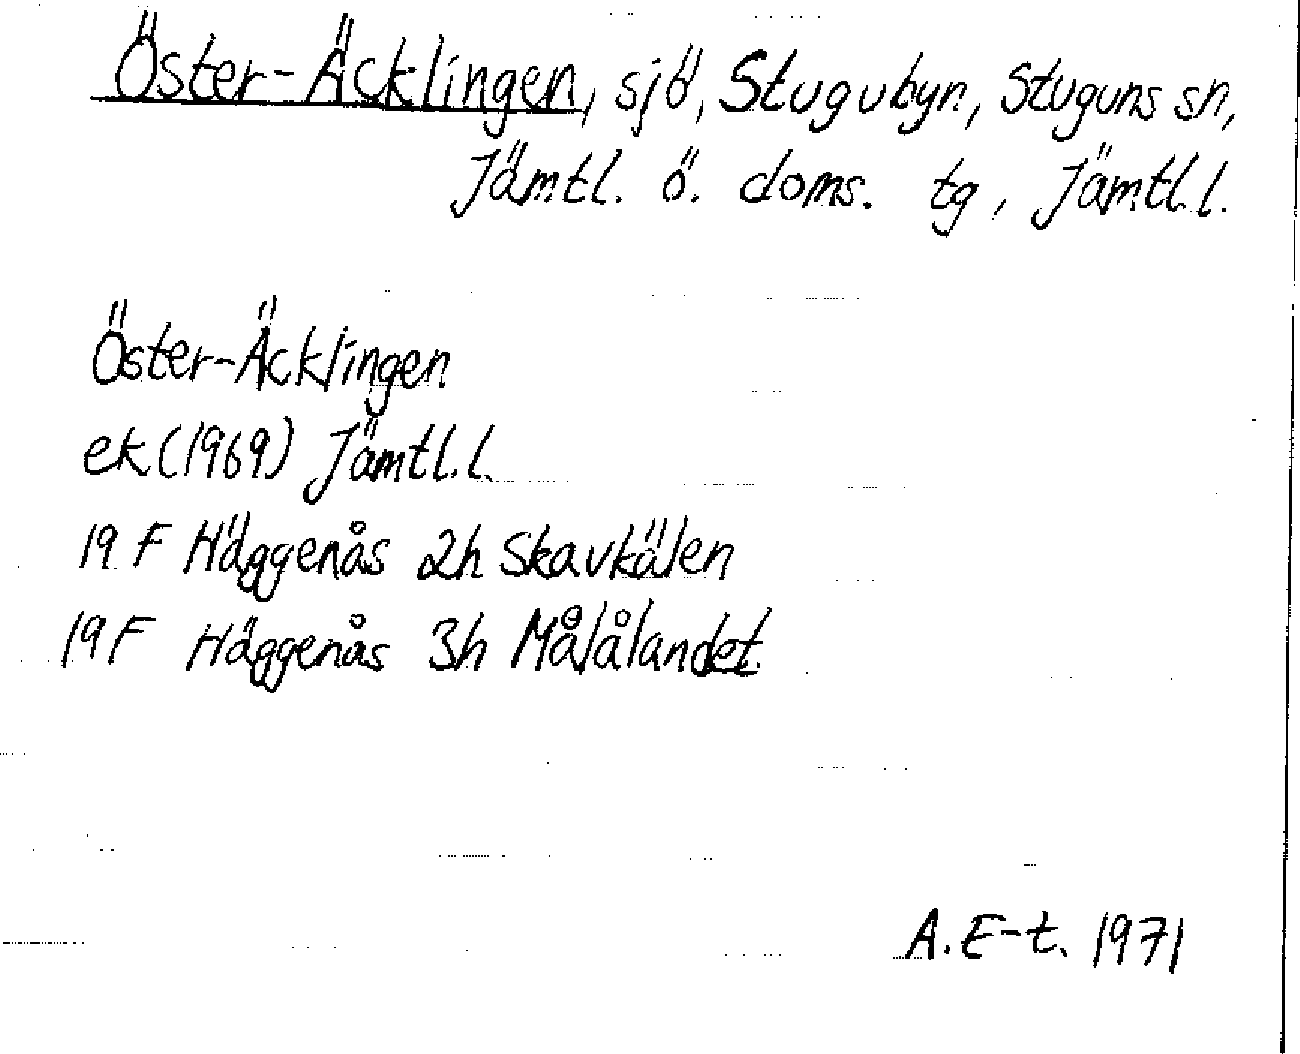 Öster-Äcklingen, sjö, Stugubyn, Stuguns sn,
Jämtl. ö. doms. tg, Jämtl.l.
Öster-Äcklingen
ek (1969) Jämtl.l.
19 F Häggenås 2h Skavkälen
19 F Häggenås 3h Målålandet
A. E-t. 1971